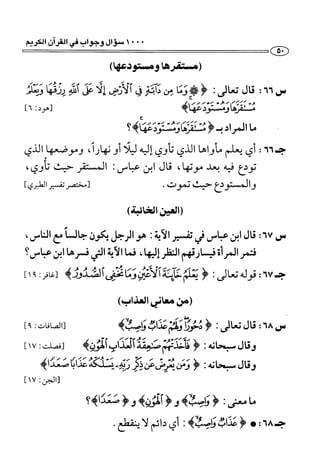 ١٠٠٠ سؤال وجواب في القرآن الكريم
٥٠
(مستقرها ومستودعها)
س٦٦: قال تعالى: ﴿ ۞ وَمَا مِن دَآبَّةٍ فِي ٱلْأَرْضِ إِلَّا عَلَى ٱللَّهِ رِزْقُهَا وَيَعْلَمُ
مُسْتَقَرَّهَا وَمُسْتَوْدَعَهَا﴾ [هود: ٦]
ما المراد بـ ﴿مُسْتَقَرَّهَا وَمُسْتَوْدَعَهَا﴾؟
جـ٦٦: أي يعلم مأواها الذي تأوي إليه ليلًا أو نهاراً، وموضعها الذي
تودع فيه بعد موتها، قال ابن عباس: المستقر حيث تأوي،
والمستودع حيث تموت. [مختصر تفسير الطبري]
(العين الخائنة)
س٦٧: قال ابن عباس في تفسير الآية: هو الرجل يكون جالساً مع الناس،
فتمر المرأة فيسارقهم النظر إليها، فما الآية التي فسرها ابن عباس؟
جـ٦٧: قوله تعالى: ﴿ يَعْلَمُ خَآئِنَةَ ٱلْأَعْيُنِ وَمَا تُخْفِي ٱلصُّدُورُ﴾ [غافر: ١٩]
(من معاني العذاب)
س٦٨: قال تعالى: ﴿ دُحُورًا وَلَهُمْ عَذَابٌ وَاصِبٌ﴾ [الصافات: ٩]
وقال سبحانه: ﴿ فَأَخَذَتْهُمْ صَٰعِقَةُ ٱلْعَذَابِ ٱلْهُونِ﴾ [فصلت: ١٧]
وقال سبحانه: ﴿ وَمَن يُعْرِضْ عَن ذِكْرِ رَبِّهِۦ يَسْلُكْهُ عَذَابًا صَعَدًا﴾
[الجن: ١٧]
ما معنى: ﴿ وَاصِبٌ﴾ و﴿ ٱلْهُونِ﴾ و﴿ صَعَدًا﴾؟
جـ٦٨: • ﴿ عَذَابٌ وَاصِبٌ﴾: أي دائم لا ينقطع.